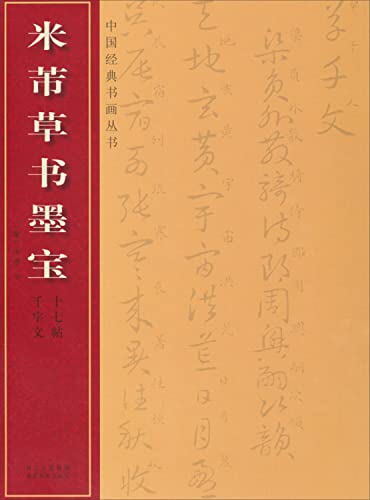 米芾草书墨宝
十七帖
千字文
中国经典书画丛书
草千文
梁員外散騎侍郎周興嗣次韻
天地玄黃宇宙洪荒日月盈
昃辰宿列張寒來暑往秋收